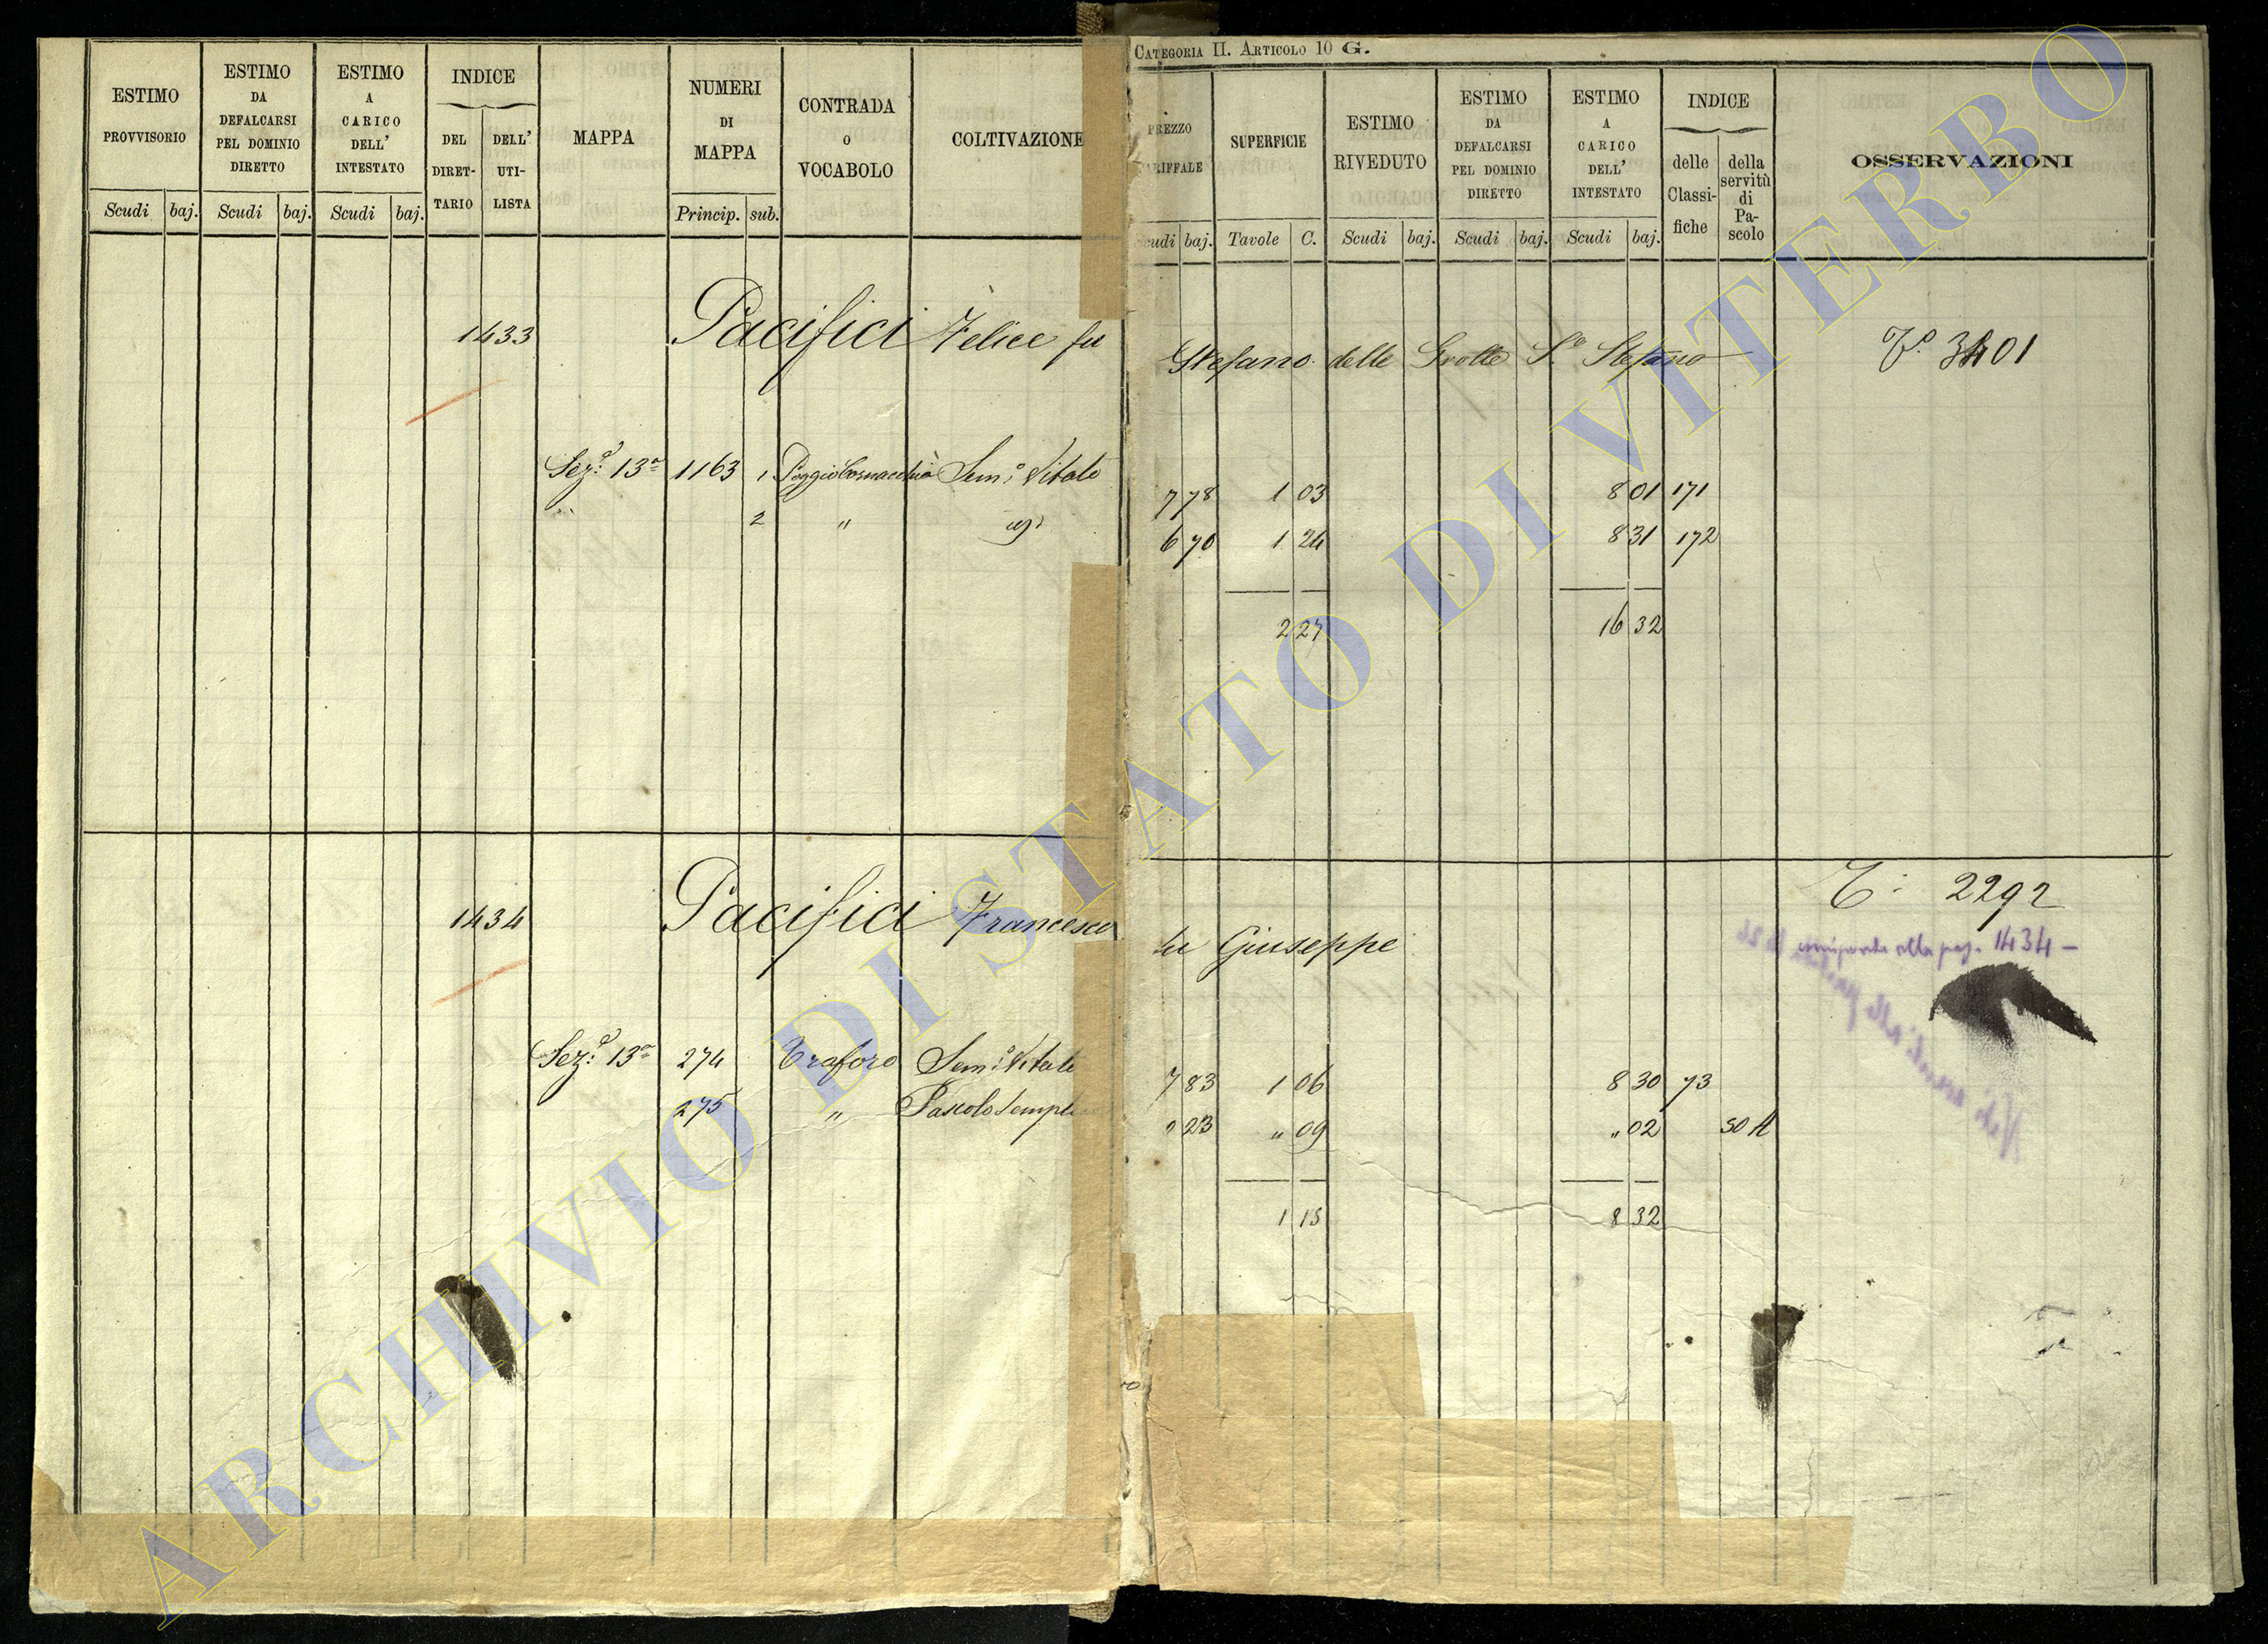 CATEGORIA II. ARTICOLO 10 G.
ESTIMO PROVVISORIO
ESTIMO DA DEFALCARSI PEL DOMINIO DIRETTO
ESTIMO A CARICO DELL' INTESTATO
INDICE
DEL DIRETTARIO
DELL' UTILISTA
MAPPA
NUMERI DI MAPPA
CONTRADA O VOCABOLO
COLTIVAZIONE
PREZZO TARIFFALE
SUPERFICIE
ESTIMO RIVEDUTO
ESTIMO DA DEFALCARSI PEL DOMINIO DIRETTO
ESTIMO A CARICO DELL' INTESTATO
INDICE
delle Classifiche
della servitù di Pascolo
OSSERVAZIONI
Scudi baj. Scudi baj. Scudi baj. Princip. sub. Scudi baj. Tavole C. Scudi baj. Scudi baj. Scudi baj.
1433 Pacifici Felice fu Stefano delle Grotte S.o Stefano
Sez.e 13a 1163 1 Poggio Cornacchia Sem.o Vitato 7 78 1 03 8 01 171
" 2 " 6 70 1 24 8 31 172
2 27 16 32
1434 Pacifici Francesco fu Giuseppe T: 2292
alla pag. 1434 –
Sez.e 13a 274 Traforo Sem.o Vitato 7 83 1 06 8 30 73
275 " Pascolo Semplice " 23 " 09 " 02 50 A
1 15 8 32
ARCHIVIO DI STATO DI VITERBO